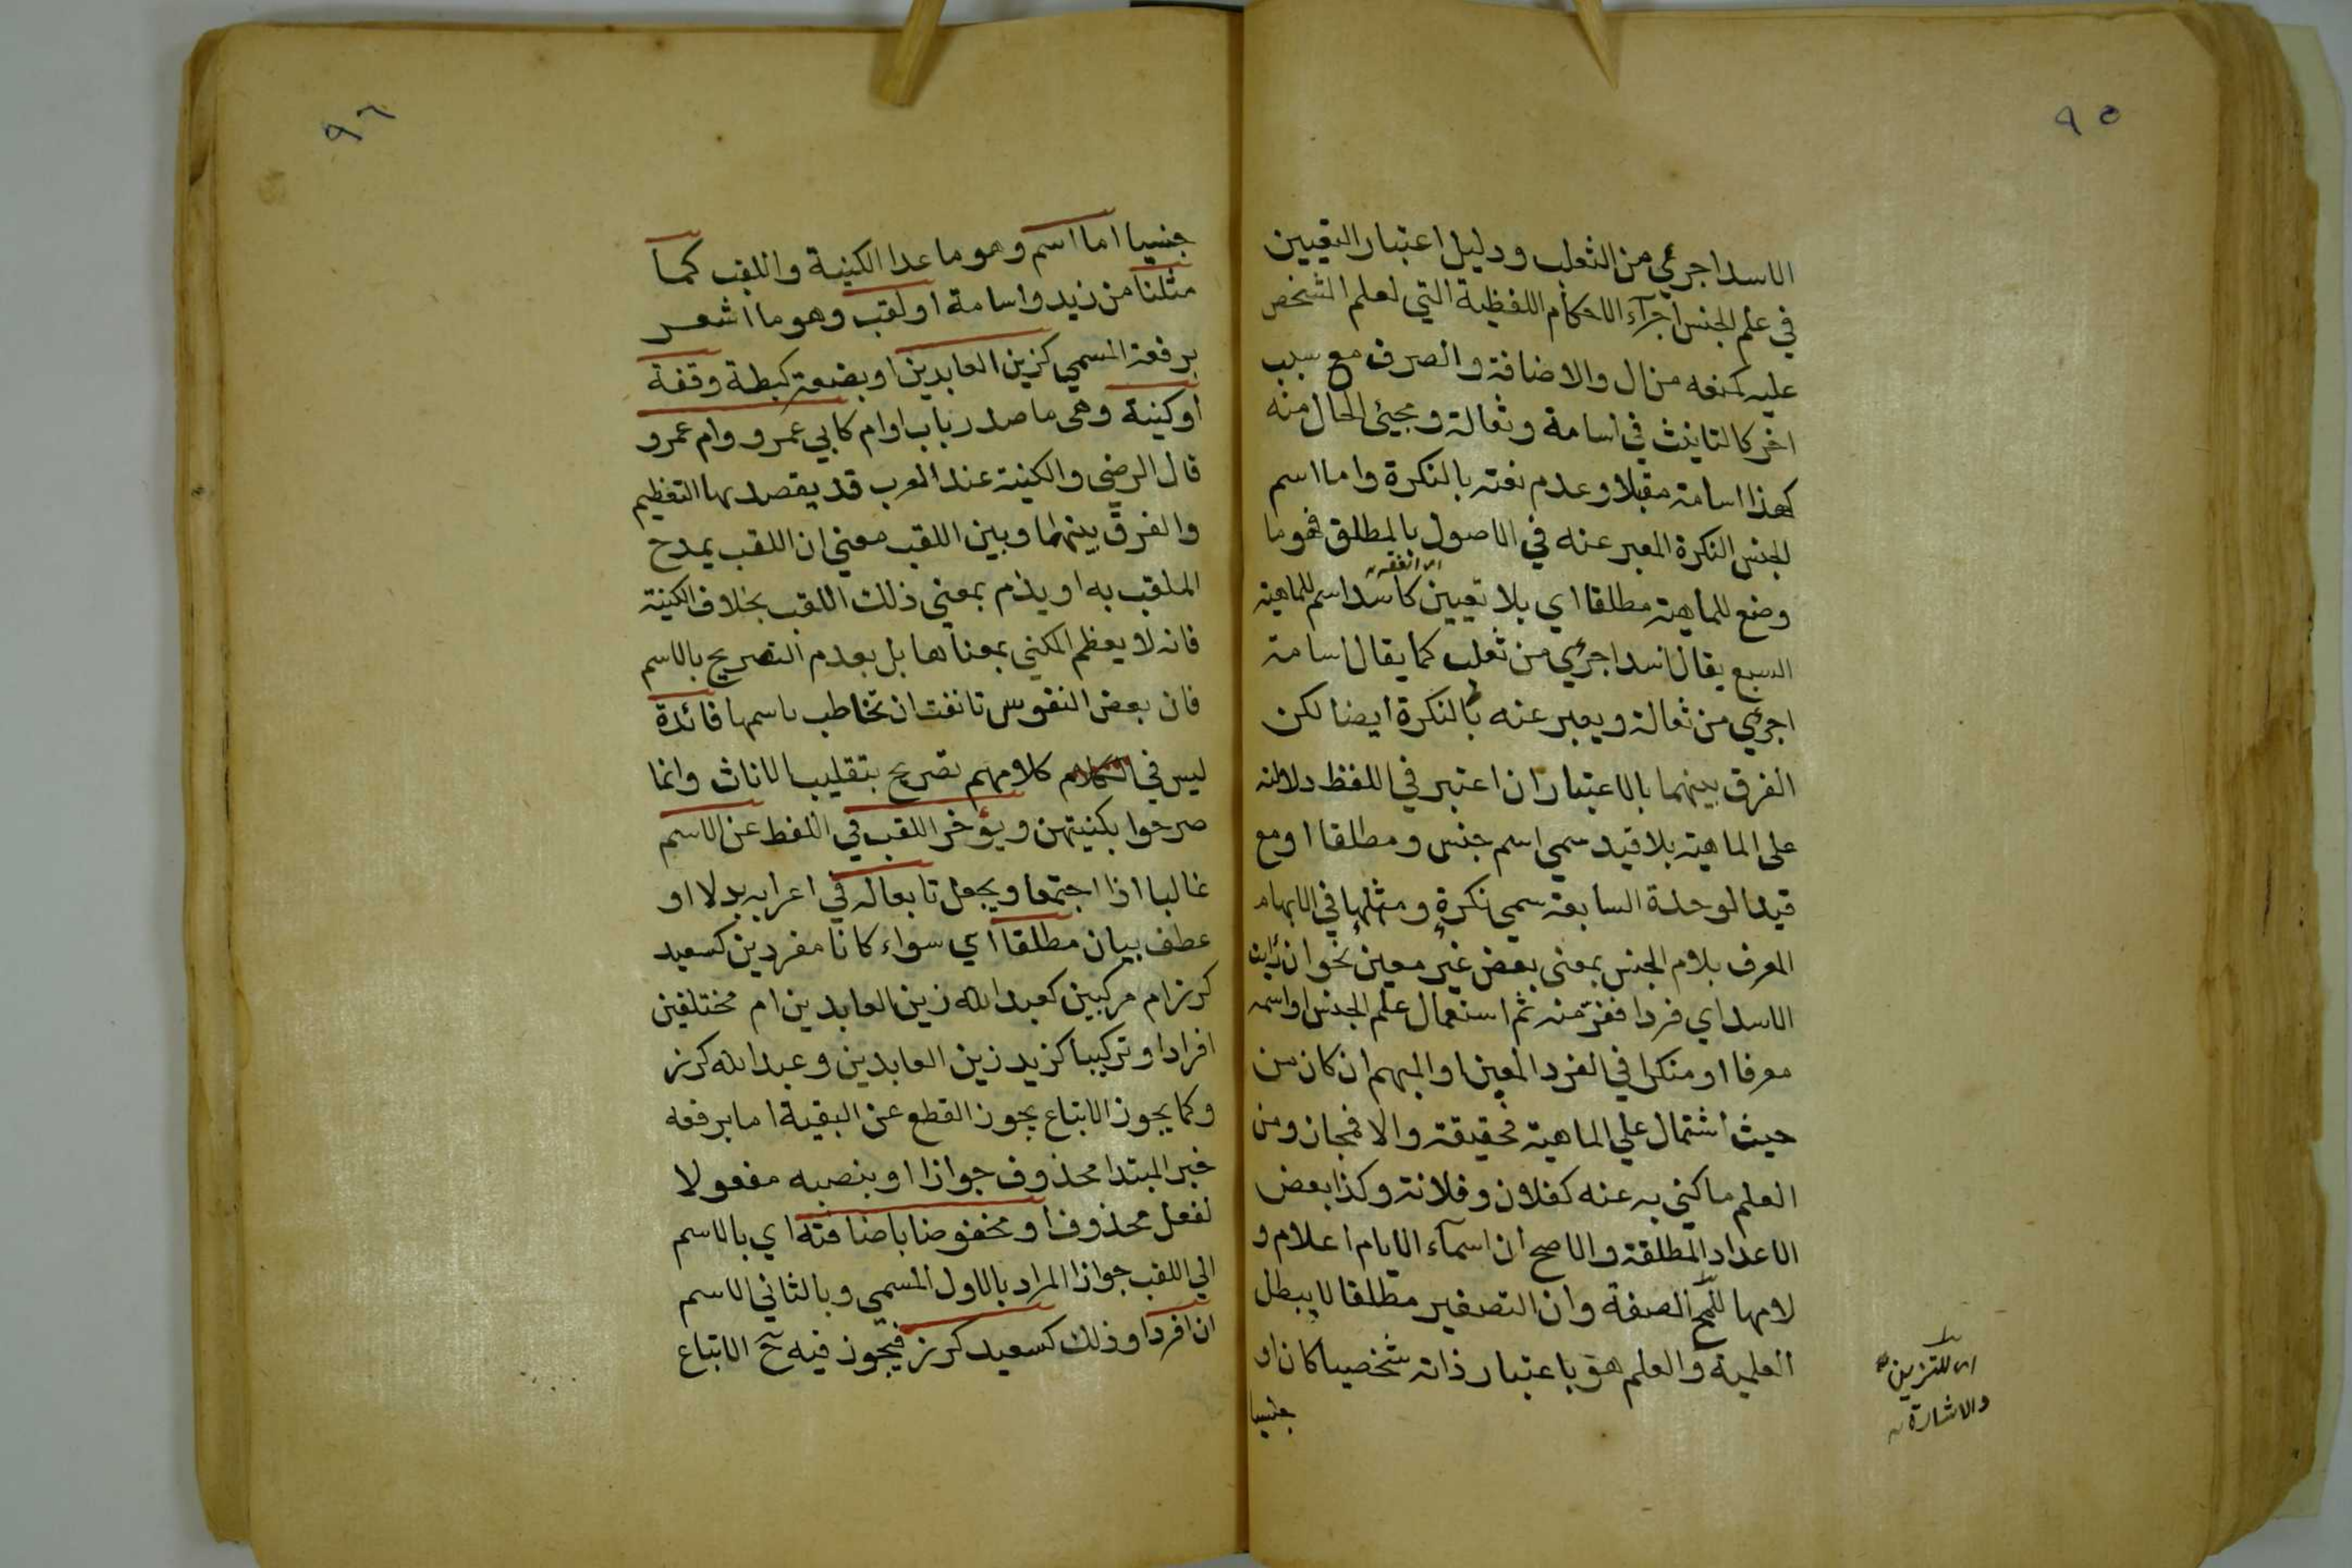 ٩٥
الاسد اجرئي من الثعلب ودليل اعتبار التعيين
في علم الجنس اجرآء الاحكام اللفظية التي لعلم الشخص
عليه كمنعه من ال والاضافة والصرف مع سبب
اخر كالتانيث في اسامة وثعالة ومجيئ الحال منه
كهذا اسامة مقبلا وعدم نعته بالنكرة واما اسم
الجنس النكرة المعبر عنه في الاصول بالمطلق فهو ما
وضع للماهية مطلقا اي بلا تعيين كاسد اسم للماهية
السبع يقال اسد اجرئي من ثعلب كما يقال اسامة
اجرئي من ثعالة ويعبر عنه بالنكرة ايضا لكن
الفرق بينهما بالاعتبار ان اعتبر في اللفظ دلالته
على الماهية بلا قيد سمي اسم جنس ومطلقا او مع
قيد الوحدة السابعة سمي نكرة ومثلها في الابهام
المعرف بلام الجنس بمعنى بعض غير معين نحو ان رايت
الاسد اي فردا ففز منه ثم استعمال علم الجنس او اسمه
معرفا او منكرا في الفرد المعين او المبهم ان كان من
حيث اشتمال علي الماهية فحقيقة والا فمجاز ومن
العلم ما كني به عنه كفلان وفلانة وكذا بعض
الاعداد المطلقة والاصح ان اسمآء الايام اعلام و
لامها للمح الصفة وان التصغير مطلقا لا يبطل
العلمية والعلم هو باعتبار ذاته شخصيا كان او
جنسيا
اى للتزيين
والاشارة
٩٦
جنسيا اما اسم وهو ما عدا الكنية واللقب كما
مثلنا من زيد واسامة او لقب وهو ما اشعر
برفعة المسمي كزين العابدين او بضعة كبطة وقفة
او كنية وهى ما صدر باب او ام كابي عمرو وام عمرو
قال الرضي والكنية عند العرب قد يقصد بها التعظيم
والفرق بينهما وبين اللقب معني ان اللقب يمدح
الملقب به او يذم بمعني ذلك اللقب بخلاف الكنية
فانه لا يعظم المكني بمعناها بل بعدم التصريح بالاسم
فان بعض النفوس تانفت ان تخاطب باسمها فائدة
ليس في كلامهم تصريح بتقليب الاناث وانما
صرحوا بكنيتهن ويؤخر اللقب في اللفظ عن الاسم
غالبا اذا اجتمعا ويجعل تابعا له في اعرابه بدلا او
عطف بيان مطلقا اي سواء كانا مفردين كسعيد
كرز ام مركبين كعبد الله زين العابدين ام مختلفين
افرادا وتركيبا كزيد زين العابدين وعبد الله كرز
وكما يجوز الاتباع يجوز القطع عن البقية اما برفعه
خبر المبتدا محذوف جوازا او بنصبه مفعولا
لفعل محذوف او مخفوضا باضافته اي بالاسم
الي اللقب جوازا المراد بالاول المسمي وبالثاني الاسم
ان افردا وذلك كسعيد كرز فيجوز فيه ح الاتباع